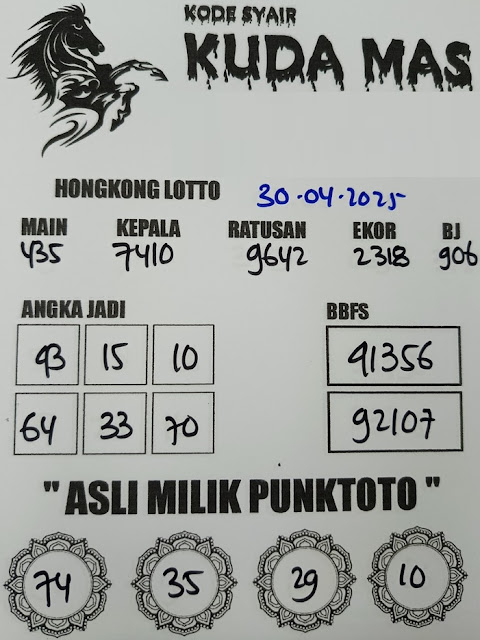 KODE SYAIR
KUDA MAS
HONGKONG LOTTO 30-04-2025
MAIN KEPALA RATUSAN EKOR BJ
435 7410 9642 2318 906
ANGKA JADI BBFS
93 15 10 91356
64 33 70 92107
" ASLI MILIK PUNKTOTO "
74 35 29 10